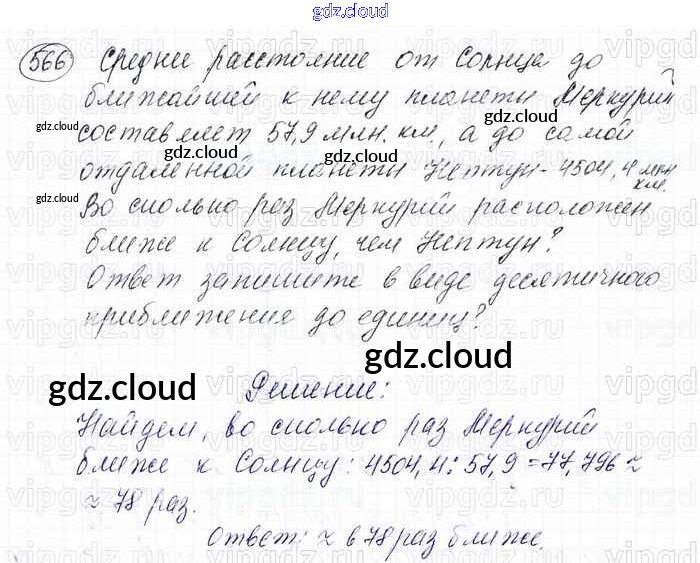 gdz.cloud
566 Среднее расстояние от Солнца до
ближайшей к нему планеты Меркурий
составляет 57,9 млн. км, а до самой
отдаленной планеты Нептун - 4504,4 млн км.
Во сколько раз Меркурий расположен
ближе к Солнцу, чем Нептун?
Ответ запишите в виде десятичного
приближение до единиц?
Решение:
Найдем, во сколько раз Меркурий
ближе к Солнцу: 4504,4 : 57,9 = 77,796 ≈
≈ 78 раз.
Ответ: ≈ в 78 раз ближе.
gdz.cloud
gdz.cloud
gdz.cloud
gdz.cloud
gdz.cloud
gdz.cloud